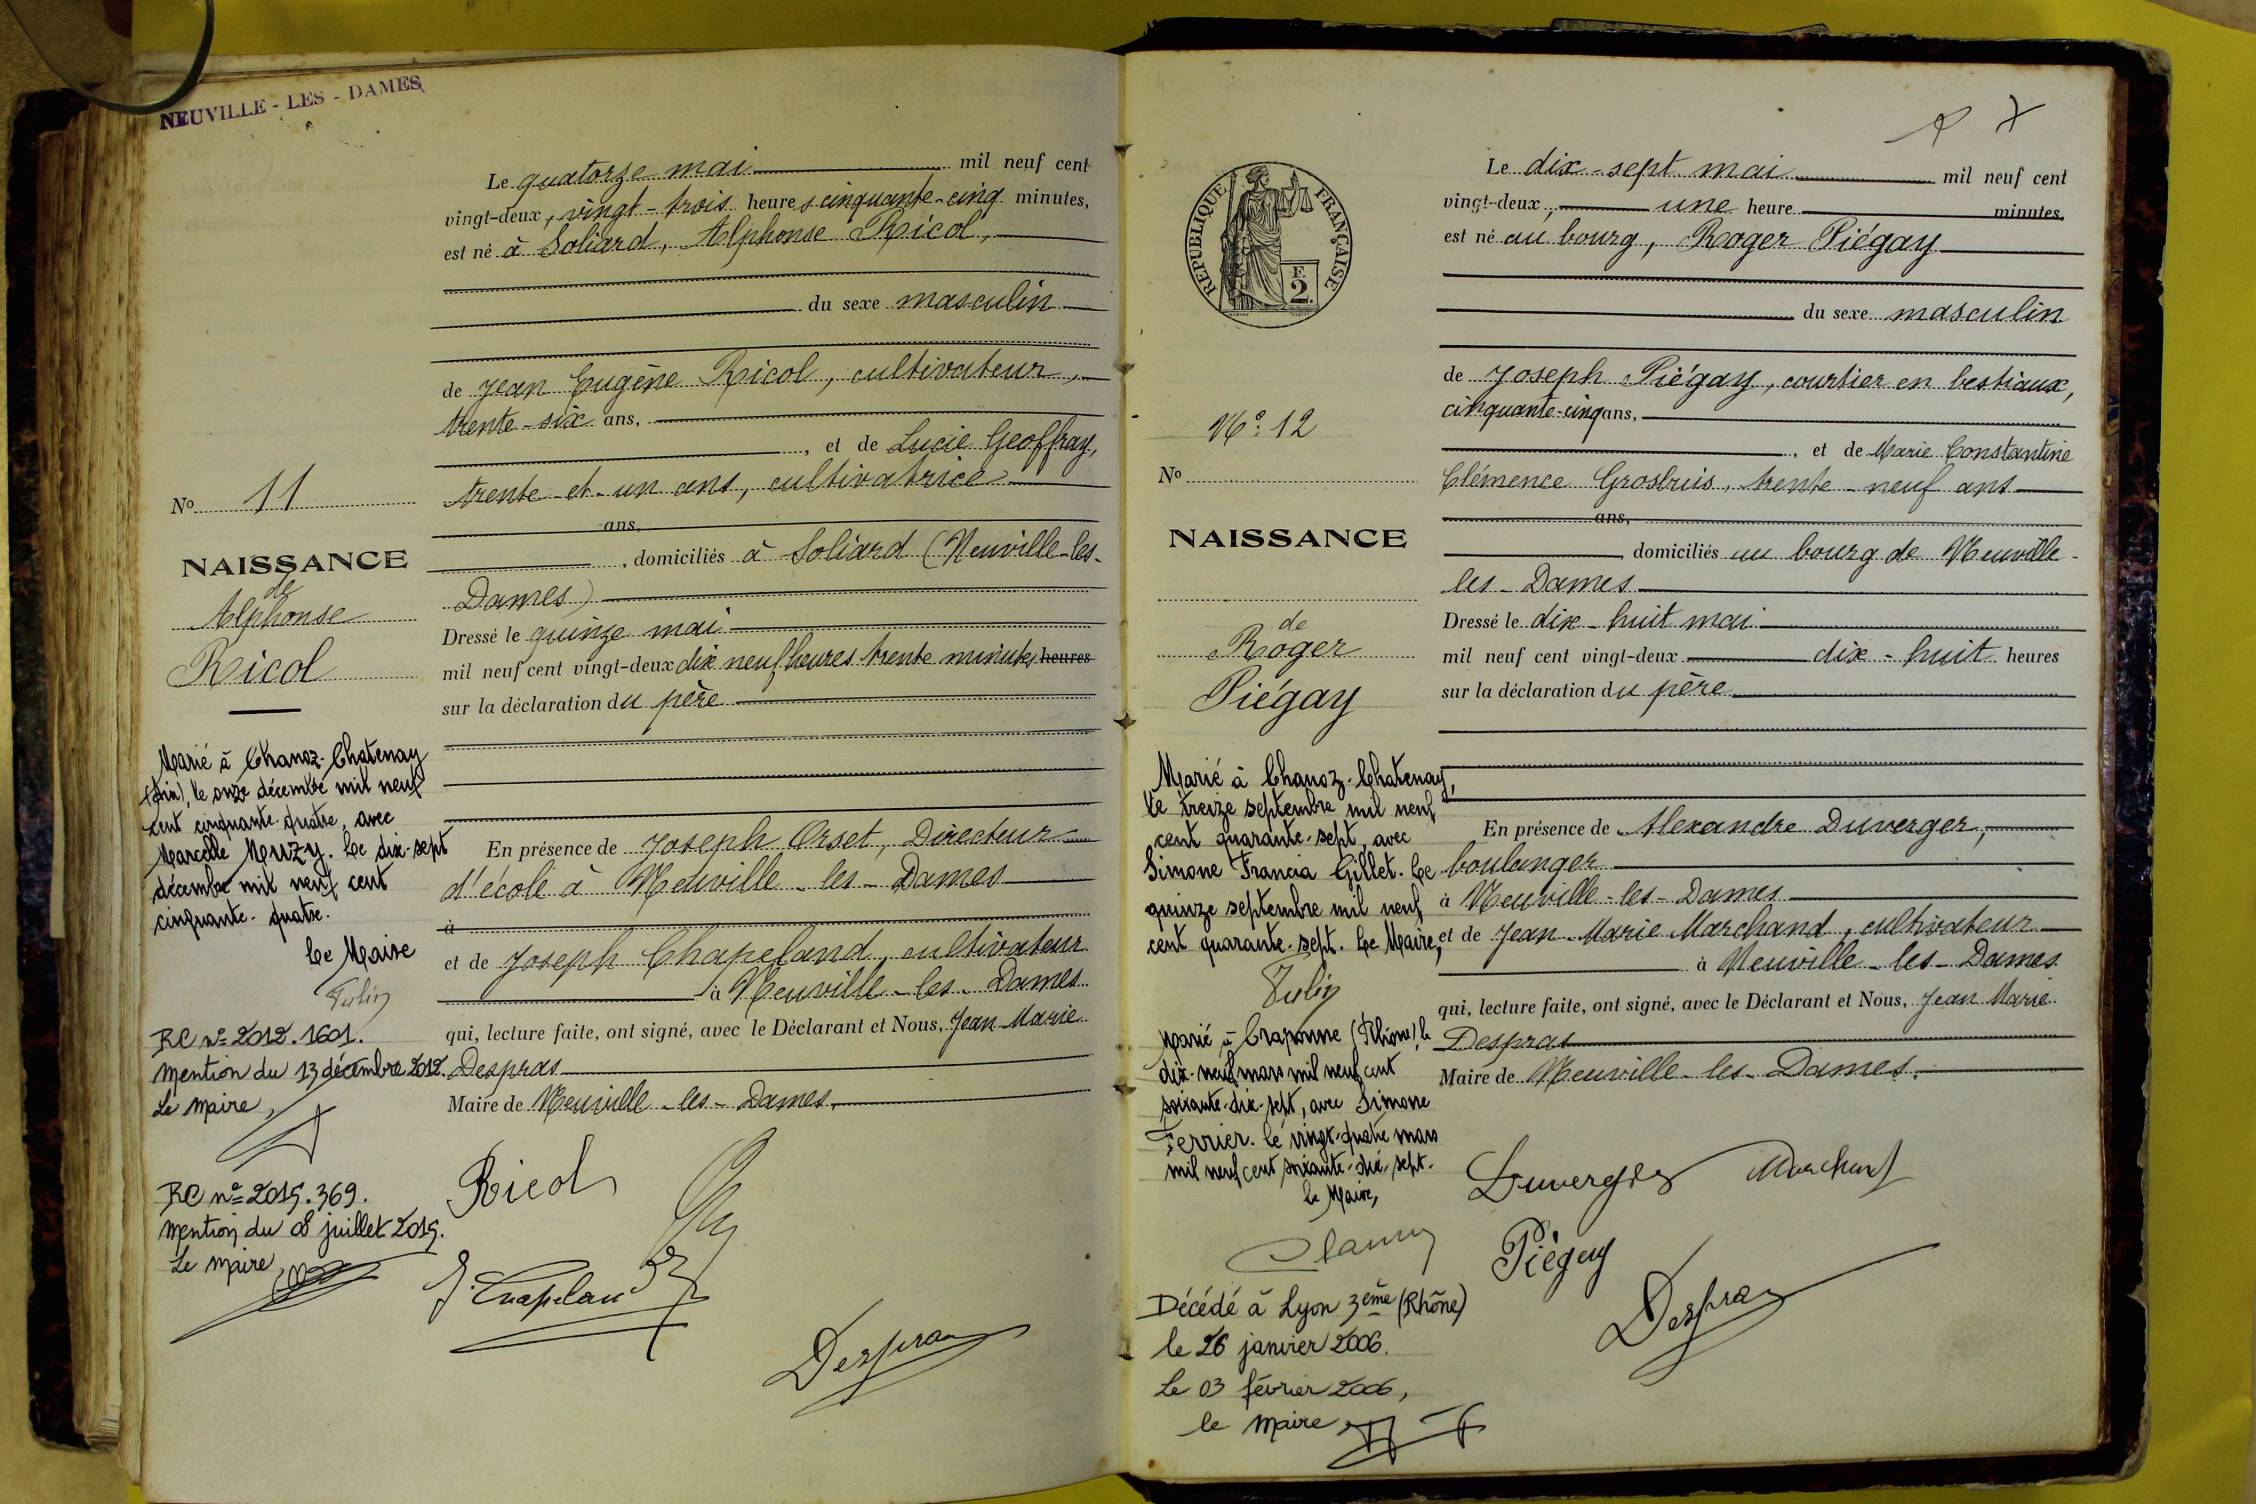 NEUVILLE - LES - DAMES
Le quatorze mai mil neuf cent
vingt-deux, vingt-trois heures cinquante-cinq minutes,
est né à Soliard, Alphonse Ricol,
du sexe masculin
de Jean Eugène Ricol, cultivateur,
trente-six ans,
, et de Lucie Geoffray,
trente-et-un ans, cultivatrice
ans,
, domiciliés à Soliard (Neuville-les-
Dames)
Dressé le quinze mai
mil neuf cent vingt-deux dix neuf heures trente minutes heures
sur la déclaration du père
En présence de Joseph Orset, Directeur
d'école à Neuville-les-Dames
à
et de Joseph Chapeland, cultivateur
à Neuville-les-Dames
qui, lecture faite, ont signé, avec le Déclarant et Nous, Jean Marie
Despras
Maire de Neuville-les-Dames.
Ricol
J. Chapeland
Despras
No 11
NAISSANCE
de
Alphonse
Ricol
Marié à Chanoz-Chatenay
(Ain), le onze décembre mil neuf
cent cinquante-quatre, avec
Marcelle Muzy. Le dix-sept
décembre mil neuf cent
cinquante-quatre.
Le Maire
RC nº 2012.1601.
Mention du 13 décembre 2012.
Le Maire,
RC nº 2015.369.
Mention du 08 juillet 2015.
Le Maire,
7
RÉPUBLIQUE FRANÇAISE
F.
2.
Le dix-sept mai mil neuf cent
vingt-deux, une heure minutes,
est né au bourg, Roger Piégay
du sexe masculin
de Joseph Piégay, courtier en bestiaux,
cinquante-cinq ans,
, et de Marie Constantine
Clémence Grosbuis, trente-neuf ans
ans,
, domiciliés au bourg de Neuville-
les-Dames
Dressé le dix-huit mai
mil neuf cent vingt-deux dix-huit heures
sur la déclaration du père
En présence de Alexandre Duverger,
boulanger
à Neuville-les-Dames
et de Jean-Marie Marchand, cultivateur
à Neuville-les-Dames
qui, lecture faite, ont signé, avec le Déclarant et Nous, Jean Marie
Despras
Maire de Neuville-les-Dames.
Duverger Marchand
Piégay
Despras
Nº: 12
No
NAISSANCE
de
Roger
Piégay
Marié à Chanoz-Chatenay,
le treize septembre mil neuf
cent quarante-sept, avec
Simone Francia Gillet. Le
quinze septembre mil neuf
cent quarante-sept. Le Maire,
Marié à Craponne (Rhône), le
dix-neuf mars mil neuf cent
soixante-dix-sept, avec Simone
Ferrier. Le vingt-quatre mars
mil neuf cent soixante-dix-sept.
Le Maire,
Décédé à Lyon 3ème (Rhône)
le 26 janvier 2006.
Le 03 février 2006,
le Maire